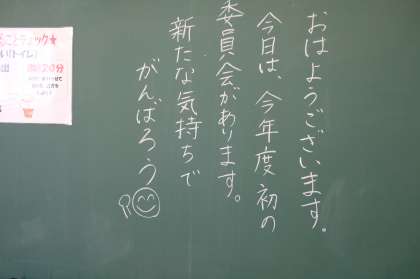 おはようございます。
今日は、今年度初の
委員会があります。
新たな気持ちで
がんばろう